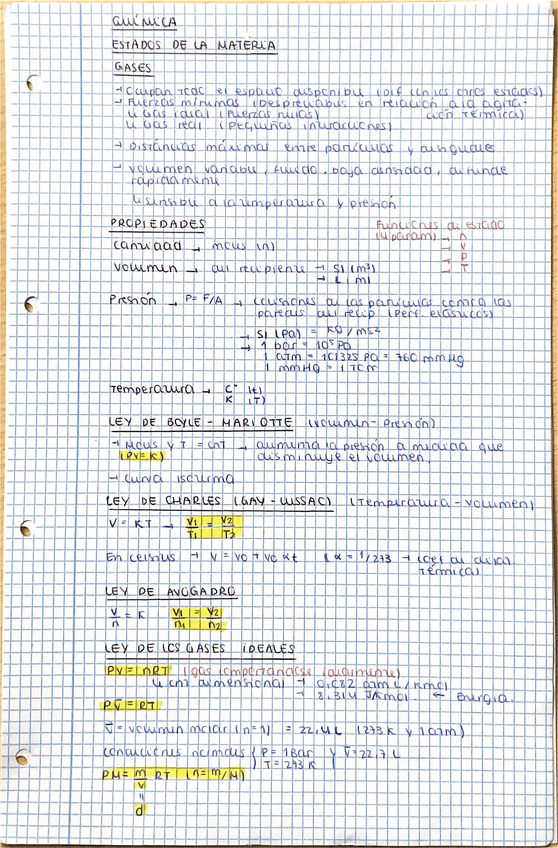 QUÍMICA
ESTADOS DE LA MATERIA
GASES
→ Ocupan todo el espacio disponible (Dif. con los otros estados)
→ Fuerzas mínimas (Despreciables en relación a la agita-
ción térmica)
↳ Gas ideal (Fuerzas nulas)
↳ Gas real (pequeñas interacciones)
→ Distancias máximas entre partículas y desiguales
→ Volumen variable, fluido, baja densidad, difunde
rápidamente
↳ sensible a la temperatura y presión
PROPIEDADES
Funciones de estado
(4 param) → n
→ V
→ P
→ T
Cantidad → moles (n)
Volumen → del recipiente → SI (m³)
→ L (ml)
Presión → P= F/A → colisiones de las partículas contra las
paredes del recip (perf. elásticos)
→ SI (Pa) = kg/ms²
→ 1 bar = 10⁵ Pa
1 atm = 101325 Pa = 760 mmHg
1 mmHg = 1 Torr
Temperatura → C° (t)
K (T)
LEY DE BOYLE - MARIOTTE (volumen-presión)
→ Moles y T = cnt → aumenta la presión a medida que
(PV=K) disminuye el volumen.
→ curva isoterma
LEY DE CHARLES (GAY-LUSSAC) (Temperatura-volumen)
V = KT → V1/T1 = V2/T2
En celsius → V = V0 + V0 αt (α = 1/273 → coef de dilat
térmica)
LEY DE AVOGADRO
V/n = K V1/n1 = V2/n2
LEY DE LOS GASES IDEALES
PV = nRT (gas comportándose idealmente)
↳ cnt dimensional → 0,082 atm L/Kmol
→ 8,314 J/Kmol. ← Energía.
PV̄ = RT
V̄ = volumen molar (n=1) = 22,4L (273K y 1 atm)
Condiciones normales { P = 1 Bar y V̄ = 22,7 L
T = 273 K
PM = m/V RT (n=m/M)
"
d